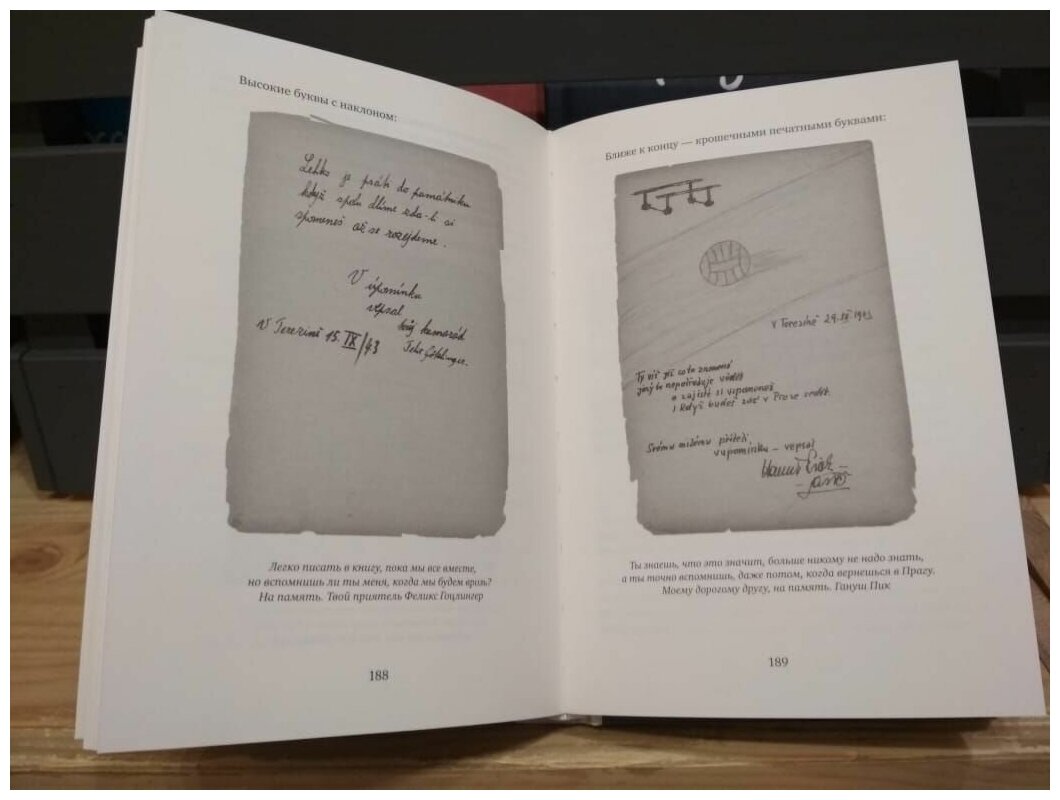 Высокие буквы с наклоном:
Lehko je psáti do památníku
když spolu dlíme zda-li si
vpomeneš až se rozejdeme.
V upomínku
vepsal
tvůj kamarád
V Terezíně 15. IX/43
Легко писать в книгу, пока мы все вместе,
но вспомнишь ли ты меня, когда мы будем врозь?
На память. Твой приятель Феликс Гоцлингер
188
Ближе к концу — крошечными печатными буквами:
V Terezíně 29. IX 1943
Ty víš již co to znamená
jiný to nepotřebuje vědět
a zajisté si vzpomeneš
i když budeš zas v Praze sedět
Svému milému příteli
v upomínku – vepsal
Ты знаешь, что это значит, больше никому не надо знать,
а ты точно вспомнишь, даже потом, когда вернешься в Прагу.
Моему дорогому другу, на память. Гануш Пик
189